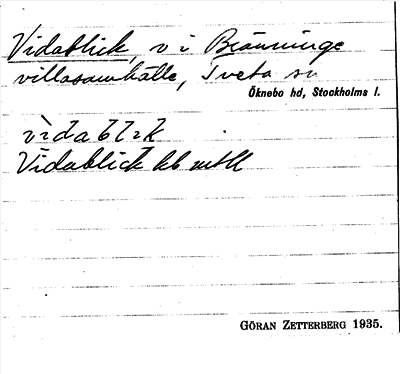 Vidablick, v i Bränninge
villasamhälle, Tveta sn
Öknebo hd, Stockholms l.
vìdablìk
Vidablick hb mtll
GÖRAN ZETTERBERG 1935.